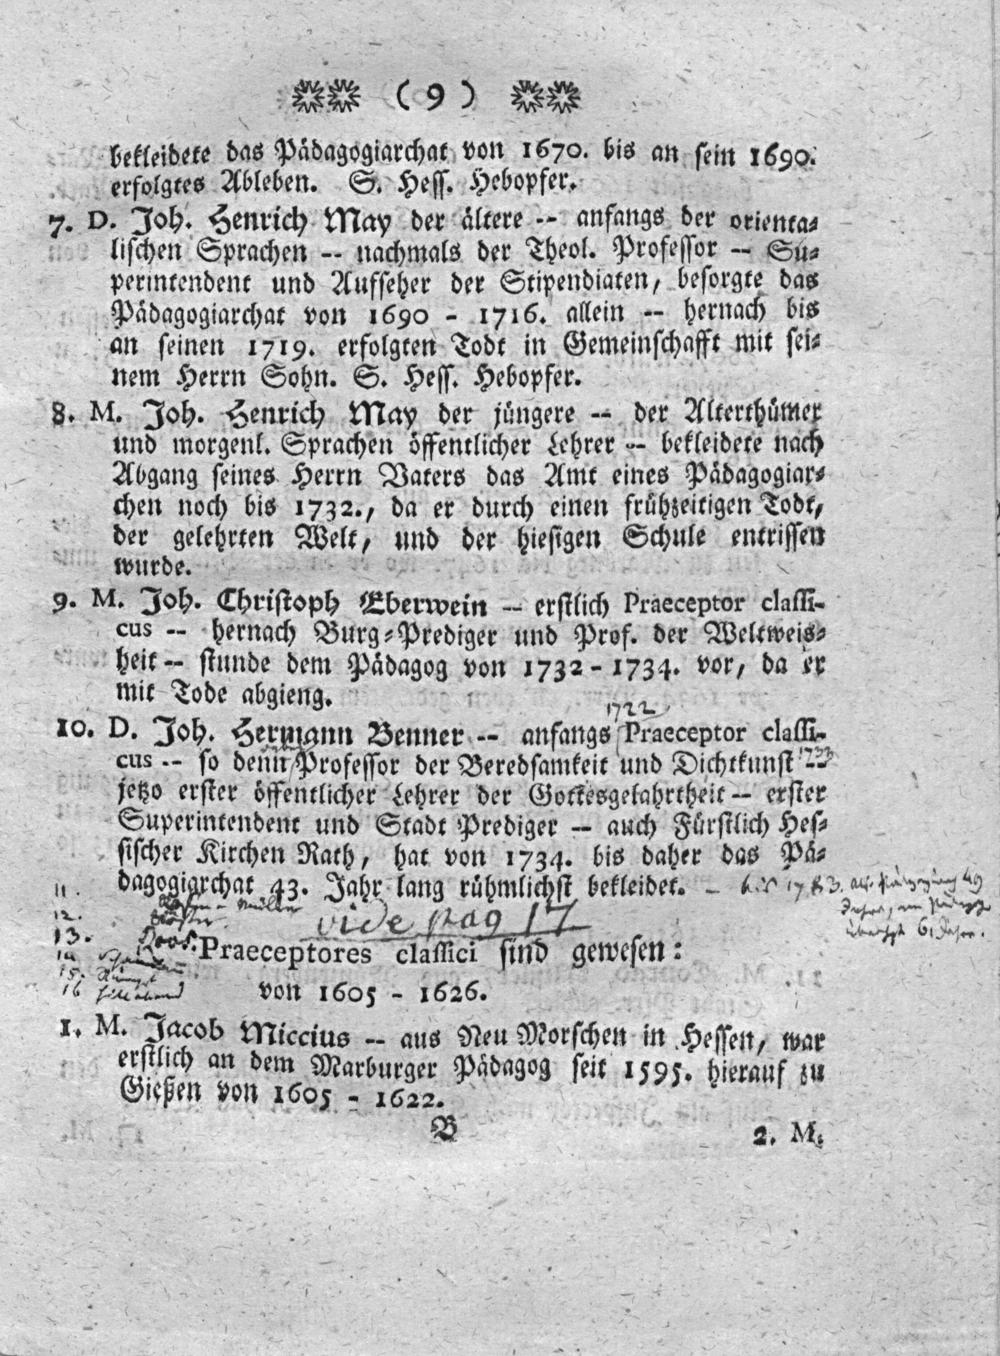 ( 9 )
bekleidete das Pädagogiarchat von 1670. bis an sein 1690.
erfolgtes Ableben. S. Hess. Hebopfer.
7. D. Joh. Henrich May der ältere -- anfangs der orienta-
lischen Sprachen -- nachmals der Theol. Professor -- Su-
perintendent und Aufseher der Stipendiaten, besorgte das
Pädagogiarchat von 1690 - 1716. allein -- hernach bis
an seinen 1719. erfolgten Todt in Gemeinschafft mit sei-
nem Herrn Sohn. S. Hess. Hebopfer.
8. M. Joh. Henrich May der jüngere -- der Alterthümer
und morgenl. Sprachen öffentlicher Lehrer -- bekleidete nach
Abgang seines Herrn Vaters das Amt eines Pädagogiar-
chen noch bis 1732., da er durch einen frühzeitigen Todt,
der gelehrten Welt, und der hiesigen Schule entrissen
wurde.
9. M. Joh. Christoph Eberwein -- erstlich Praeceptor classi-
cus -- hernach Burg-Prediger und Prof. der Weltweis-
heit -- stunde dem Pädagog von 1732 - 1734. vor, da er
mit Tode abgieng.
1722
10. D. Joh. Hermann Benner -- anfangs Praeceptor classi-
cus -- so denn Professor der Beredsamkeit und Dichtkunst --
jetzo erster öffentlicher Lehrer der Gottesgelahrtheit -- erster
Superintendent und Stadt Prediger -- auch Fürstlich Hes-
sischer Kirchen Rath, hat von 1734. bis daher das Pä-
dagogiarchat 43. Jahr lang rühmlichst bekleidet.
11.
12.
vide pag 17
13. Roos.
Praeceptores classici sind gewesen:
14
15.
16
von 1605 - 1626.
1. M. Jacob Miccius -- aus Neu Morschen in Hessen, war
erstlich an dem Marburger Pädagog seit 1595. hierauf zu
Gießen von 1605 - 1622.
B
2. M.